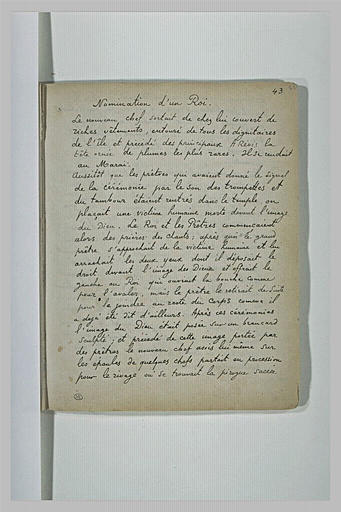 43
Nomination d'un Roi.
Le nouveau chef sortait de chez lui couvert de
riches vêtements, entouré de tous les dignitaires
de l'île et précédé des principaux Aréois la
tête ornée de plumes les plus rares. Il se rendait
au Maraï.
Aussitôt que les prêtres qui avaient donné le signal
de la cérémonie par le son des trompettes et
du tambour étaient rentrés dans le temple on
plaçait une victime humaine morte devant l'image
du Dieu. Le Roi et les Prêtres commençaient
alors des prières des chants; après quoi le grand
prêtre s'approchait de la victime humaine et lui
arrachait les deux yeux dont il déposait le
droit devant l'image des Dieux et offrait le
gauche au Roi qui ouvrait la bouche comme
pour l'avaler, mais le prêtre le retirait de suite
pour le joindre au reste du corps comme il
a déjà été dit d'ailleurs. Après ces cérémonies
l'image du Dieu était posée sur un brancard
sculpté; et précédé de cette image portée par
des prêtres le nouveau chef assis lui même sur
les épaules de quelques chefs partait en procession
pour le rivage où se trouvait la pirogue sacrée.